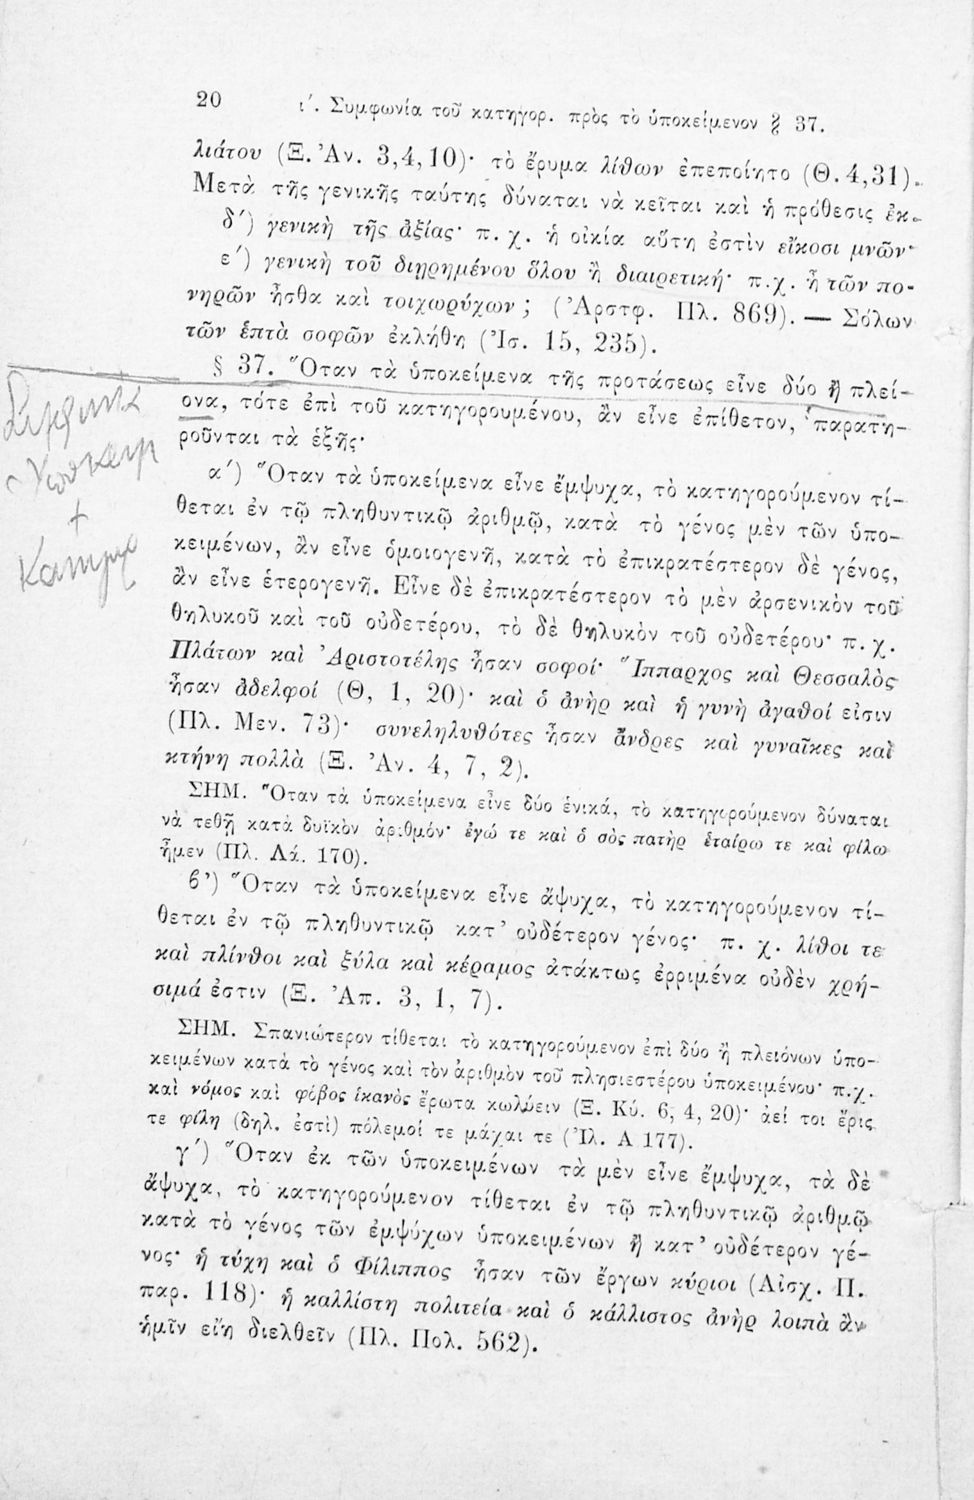 20 ι΄. Συμφωνία τοῦ κατηγορ. πρὸς τὸ ὑποκείμενον § 37.
λιάτου (Ξ. Ἀν. 3,4,10)· τὸ ἔρυμα λίθων ἐπεποίητο (Θ. 4,31).
Μετὰ τῆς γενικῆς ταύτης δύναται νὰ κεῖται καὶ ἡ πρόθεσις ἐκ.
δ΄) γενικὴ τῆς ἀξίας· π. χ. ἡ οἰκία αὕτη ἐστὶν εἴκοσι μνῶν·
ε΄) γενικὴ τοῦ διῃρημένου ὅλου ἢ διαιρετική· π.χ. ἦ τῶν πο-
νηρῶν ἦσθα καὶ τοιχωρύχων; (Ἀρστφ. Πλ. 869). — Σόλων
τῶν ἑπτὰ σοφῶν ἐκλήθη (Ἰσ. 15, 235).
§ 37. Ὅταν τὰ ὑποκείμενα τῆς προτάσεως εἶνε δύο ἢ πλεί-
ονα, τότε ἐπὶ τοῦ κατηγορουμένου, ἂν εἶνε ἐπίθετον, παρατη-
ροῦνται τὰ ἑξῆς·
α΄) Ὅταν τὰ ὑποκείμενα εἶνε ἔμψυχα, τὸ κατηγορούμενον τί-
θεται ἐν τῷ πληθυντικῷ ἀριθμῷ, κατὰ τὸ γένος μὲν τῶν ὑπο-
κειμένων, ἂν εἶνε ὁμοιογενῆ, κατὰ τὸ ἐπικρατέστερον δὲ γένος,
ἂν εἶνε ἑτερογενῆ. Εἶνε δὲ ἐπικρατέστερον τὸ μὲν ἀρσενικὸν τοῦ
θηλυκοῦ καὶ τοῦ οὐδετέρου, τὸ δὲ θηλυκὸν τοῦ οὐδετέρου· π. χ.
Πλάτων καὶ Ἀριστοτέλης ἦσαν σοφοί· Ἵππαρχος καὶ Θεσσαλὸς
ἦσαν ἀδελφοί (Θ, 1, 20)· καὶ ὁ ἀνὴρ καὶ ἡ γυνὴ ἀγαθοί εἰσιν
(Πλ. Μεν. 73)· συνεληλυθότες ἦσαν ἄνδρες καὶ γυναῖκες καὶ
κτήνη πολλὰ (Ξ. Ἀν. 4, 7, 2).
ΣΗΜ. Ὅταν τὰ ὑποκείμενα εἶνε δύο ἑνικά, τὸ κατηγορούμενον δύναται
νὰ τεθῇ κατὰ δυϊκὸν ἀριθμόν· ἐγώ τε καὶ ὁ σὸς πατὴρ ἑταίρω τε καὶ φίλω
ἦμεν (Πλ. Λά. 170).
β΄) Ὅταν τὰ ὑποκείμενα εἶνε ἄψυχα, τὸ κατηγορούμενον τί-
θεται ἐν τῷ πληθυντικῷ κατ' οὐδέτερον γένος· π. χ. λίθοι τε
καὶ πλίνθοι καὶ ξύλα καὶ κέραμος ἀτάκτως ἐρριμένα οὐδὲν χρή-
σιμά ἐστιν (Ξ. Ἀπ. 3, 1, 7).
ΣΗΜ. Σπανιώτερον τίθεται τὸ κατηγορούμενον ἐπὶ δύο ἢ πλειόνων ὑπο-
κειμένων κατὰ τὸ γένος καὶ τὸν ἀριθμὸν τοῦ πλησιεστέρου ὑποκειμένου· π.χ.
καὶ νόμος καὶ φόβος ἱκανὸς ἔρωτα κωλύειν (Ξ. Κύ. 6, 4, 20)· ἀεί τοι ἔρις
τε φίλη (δηλ. ἐστὶ) πόλεμοί τε μάχαι τε (Ἰλ. Α 177).
γ΄) Ὅταν ἐκ τῶν ὑποκειμένων τὰ μὲν εἶνε ἔμψυχα, τὰ δὲ
ἄψυχα, τὸ κατηγορούμενον τίθεται ἐν τῷ πληθυντικῷ ἀριθμῷ
κατὰ τὸ γένος τῶν ἐμψύχων ὑποκειμένων ἢ κατ' οὐδέτερον γέ-
νος· ἡ τύχη καὶ ὁ Φίλιππος ἦσαν τῶν ἔργων κύριοι (Αἰσχ. Π.
παρ. 118)· ἡ καλλίστη πολιτεία καὶ ὁ κάλλιστος ἀνὴρ λοιπὰ ἂν
ἡμῖν εἴη διελθεῖν (Πλ. Πολ. 562).